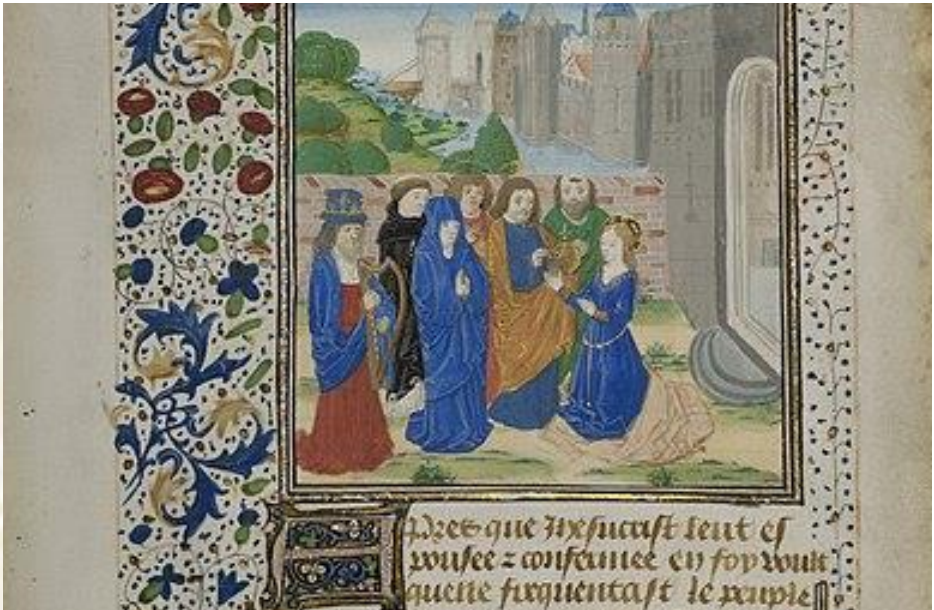 Apres que Jhesucrist leut es
pousee ⁊ confermee en foy voult
quelle frequentast le peuple